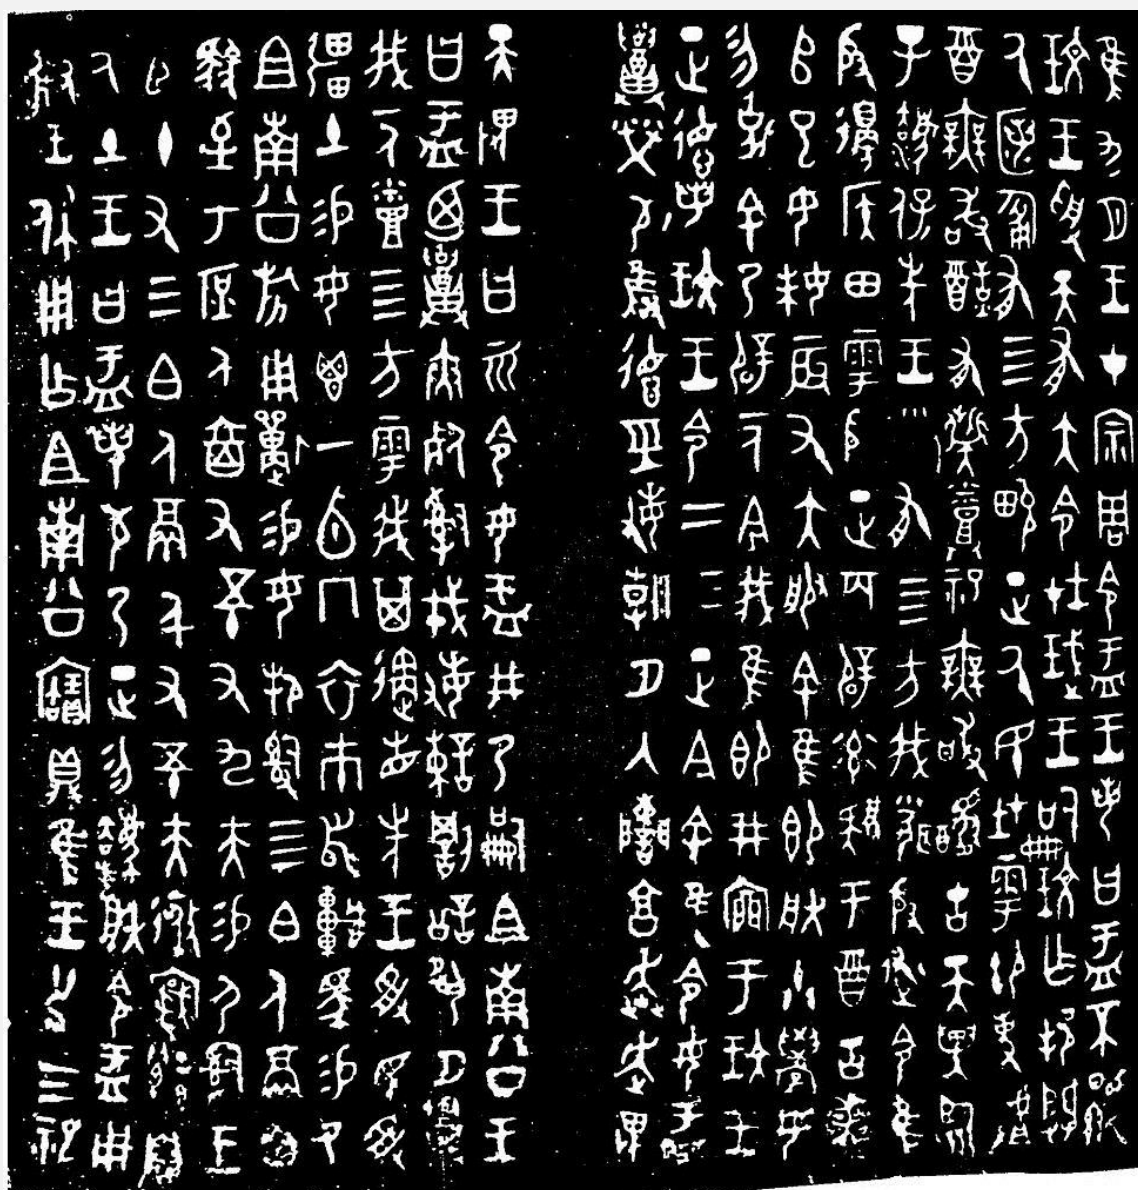 隹九月王才宗周令盂王若曰盂不顯
玟王受天有大令在珷王嗣玟乍邦闢
氒匿匍有四方畯正氒民在雩御事𠭯
酉無敢酖有髭烝祀無敢擾古天異臨
子灋保先王□有四方我聞殷述令隹
殷邊侯田雩殷正百辟率肄于酉古喪
𠂤巳女妹辰又大服余隹即朕小學女
勿剋余乃辟一人今我隹即井㐭于玟王
正德若玟王令二三正今余隹令女盂
召榮敬雝德巠敏朝夕入讕享奔走畏
天畏王曰𠀠令女盂井乃嗣且南公王
曰盂廼召夾死司戎敏諫罰訟夙夕召
我一人烝四方雩我其遹省先王受民受
疆土易女鬯一卣冂衣巿舄車馬易乃
且南公旂用狩易女邦司四白人鬲自
馭至于庶人六百又五十又九夫易尸司
王臣十又三白人鬲千又五十夫
自氒土王曰盂若敬乃正勿灋朕令盂用
對王休用乍且南公寶鼎隹王廿又三祀